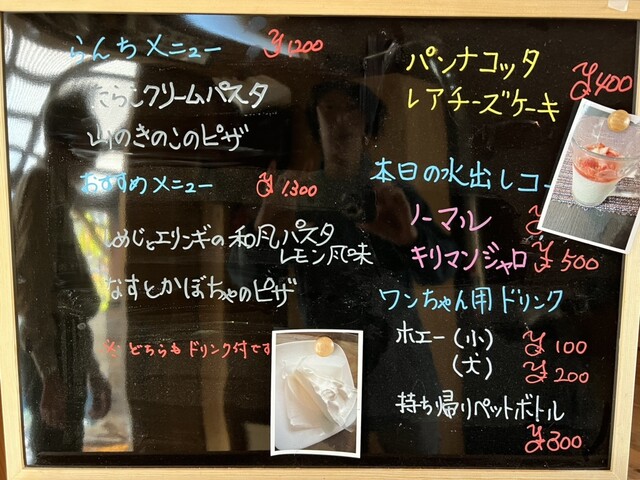 らんちメニュー ¥1200
たらこクリームパスタ
山のきのこのピザ
おすすめメニュー ¥1300
しめじとエリンギの和風パスタ
レモン風味
なすとかぼちゃのピザ
※ どちらもドリンク付です
パンナコッタ
レアチーズケーキ
¥400
本日の水出しコー
ノーマル
キリマンジャロ ¥500
ワンちゃん用ドリンク
ホエー(小) ¥100
(大) ¥200
持ち帰りペットボトル
¥300